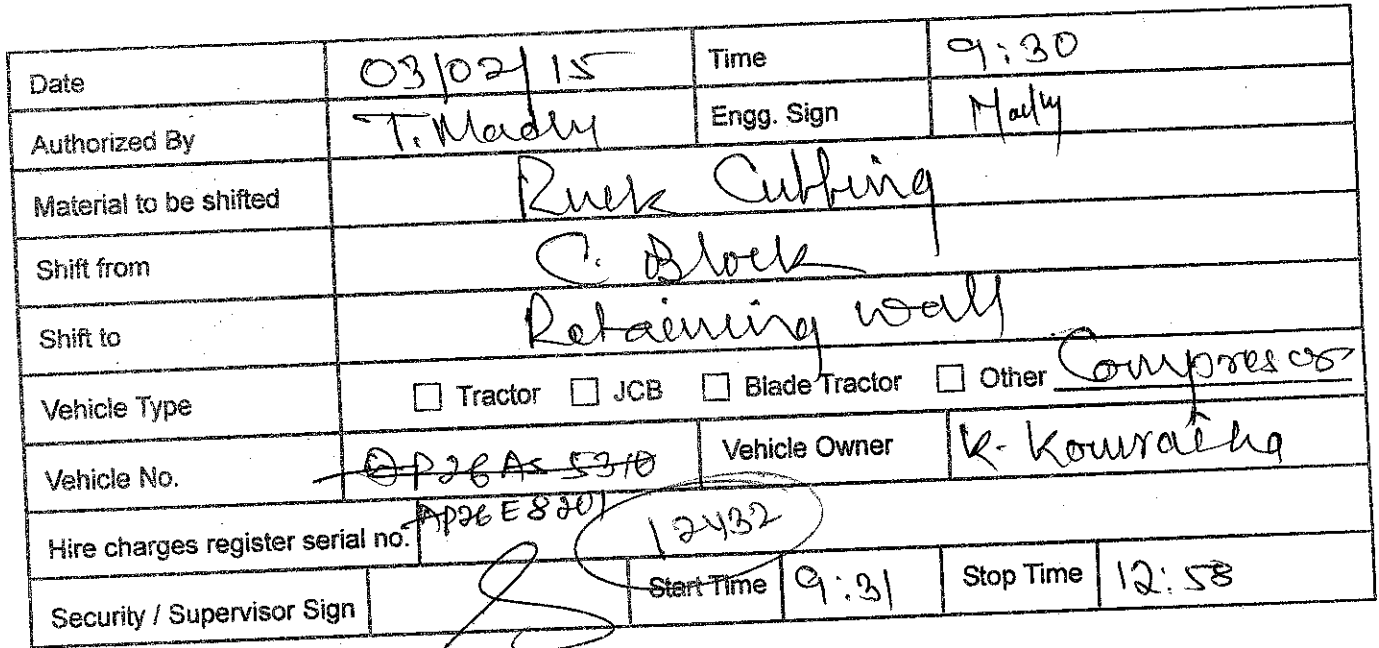 Date 03/02/15 Time 9:30
Authorized By T. Madhy Engg. Sign Madhy
Material to be shifted Ruck Cutting
Shift from C. Block
Shift to Retaining wall
Vehicle Type ☐ Tractor ☐ JCB ☐ Blade Tractor ☐ Other Compresor
Vehicle No. AP26AS 5310 Vehicle Owner K. Kouratha
AP26E8201
Hire charges register serial no. 12432
Security / Supervisor Sign Start Time 9:31 Stop Time 12:58